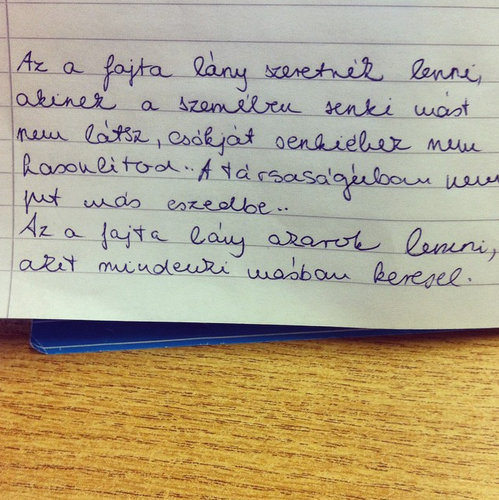 Az a fajta lány szeretnék lenni,
akinek a szemében senki mást
nem látsz, csókját senkiéhez nem
hasonlítod.. A társaságában nem
jut más eszedbe..
Az a fajta lány akarok lenni,
akit mindenki másban keresel.